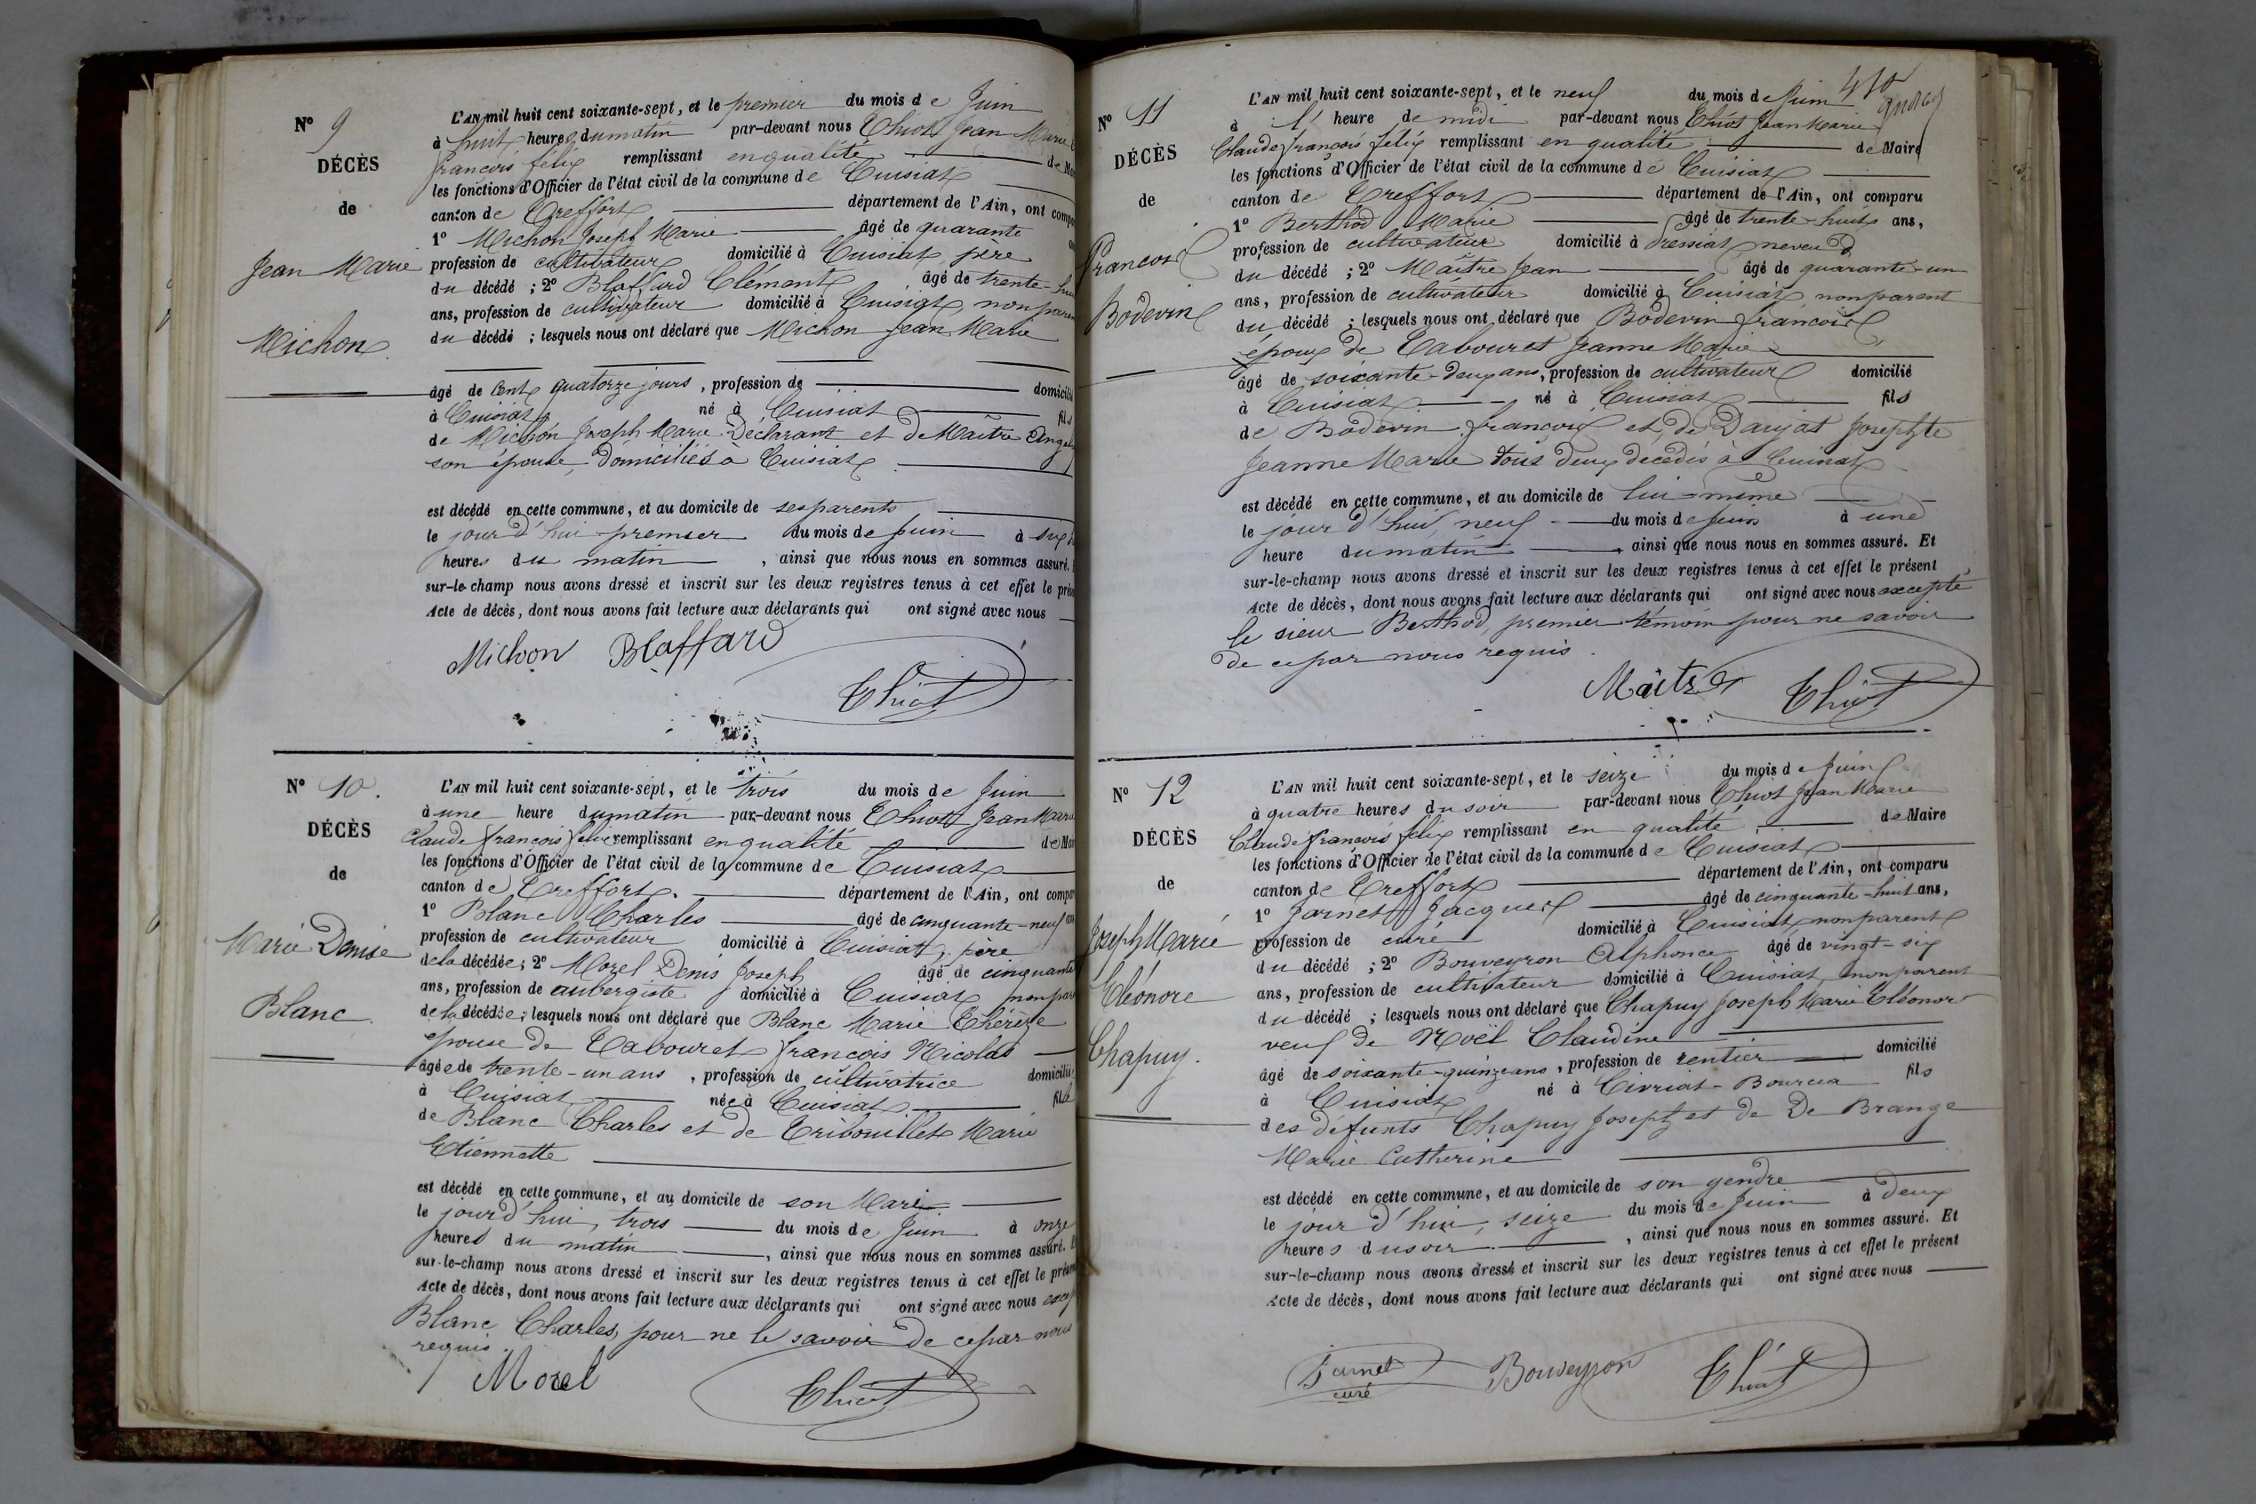 N° 9
DÉCÈS
de
Jean Marie
Michon
L'AN mil huit cent soixante-sept, et le premier du mois de Juin
à huit heures du matin par-devant nous Thiot Jean Marie
françois félix remplissant en qualité de
les fonctions d'Officier de l'état civil de la commune de Cuisiat
canton de Treffort département de l'Ain, ont
1° Michon Joseph Marie âgé de quarante
profession de cultivateur domicilié à Cuisiat père
du décédé ; 2° Blaffard Clément âgé de trente-
ans, profession de cultivateur domicilié à Cuisiat, non
du décédé ; lesquels nous ont déclaré que Michon Jean Marie
âgé de Cent quatorze jours, profession de domicilié
à Cuisiat né à Cuisiat fils
de Michon Joseph Marie Déclarant et de Maître
son épouse, domiciliés à Cuisiat
est décédé en cette commune, et au domicile de ses parents
le jour d'hui premier du mois de Juin à six
heures du matin, ainsi que nous nous en sommes assuré.
sur-le-champ nous avons dressé et inscrit sur les deux registres tenus à cet effet le
Acte de décès, dont nous avons fait lecture aux déclarants qui ont signé avec nous
Michon Blaffard
Thiot
N° 10.
DÉCÈS
de
Marie Denise
Blanc
L'AN mil huit cent soixante-sept, et le trois du mois de Juin
à une heure du matin par-devant nous Thiot Jean Marie
Claude françois félix remplissant en qualité de
les fonctions d'Officier de l'état civil de la commune de Cuisiat
canton de Treffort. département de l'Ain, ont
1° Blanc Charles âgé de cinquante-neuf
profession de cultivateur domicilié à Cuisiat, père
de la décédée ; 2° Morel Denis Joseph âgé de cinquante
ans, profession de aubergiste domicilié à Cuisiat
de la décédée ; lesquels nous ont déclaré que Blanc Marie Thérèze
épouse de Tabouret françois Nicolas
âgée de trente-un ans, profession de cultivatrice domiciliée
à Cuisiat née à Cuisiat fille
de Blanc Charles et de Tribouillet Marie
Etiennette
est décédé en cette commune, et au domicile de son Mari
le jour d'hui, trois du mois de Juin à onze
heures du matin, ainsi que nous nous en sommes assuré.
sur-le-champ nous avons dressé et inscrit sur les deux registres tenus à cet effet le
Acte de décès, dont nous avons fait lecture aux déclarants qui ont signé avec nous
Blanc Charles, pour ne le savoir de ce par nous
requis.
Morel
Thiot
410
N° 11
DÉCÈS
de
François
Bodevin
L'AN mil huit cent soixante-sept, et le neuf du mois de Juin
à l' heure de midi par-devant nous Thiot Jean Marie
Claude françois félix remplissant en qualité de Maire
les fonctions d'Officier de l'état civil de la commune de Cuisiat
canton de Treffort département de l'Ain, ont comparu
1° Berthod Marie âgé de trente-huit ans,
profession de cultivateur domicilié à Pressiat neveu
du décédé ; 2° Maître Jean âgé de quarante-un
ans, profession de cultivateur domicilié à Cuisiat, non parent
du décédé ; lesquels nous ont déclaré que Bodevin françois
époux de Tabouret Jeanne Marie
âgé de soixante-deux ans, profession de cultivateur domicilié
à Cuisiat né à Cuisiat fils
de Bodevin françois et de Daujat Josephte
Jeanne Marie tous deux décédés à Cuisiat
est décédé en cette commune, et au domicile de lui-même
le jour d'hui, neuf du mois de Juin à une
heure du matin, ainsi que nous nous en sommes assuré. Et
sur-le-champ nous avons dressé et inscrit sur les deux registres tenus à cet effet le présent
Acte de décès, dont nous avons fait lecture aux déclarants qui ont signé avec nous excepté
le sieur Berthod premier témoin pour ne savoir
de ce par nous requis.
Maître Thiot
N° 12
DÉCÈS
de
Joseph Marie
Eléonore
Chapuy.
L'AN mil huit cent soixante-sept, et le seize du mois de Juin
à quatre heures du soir par-devant nous Thiot Jean Marie
Claude françois félix remplissant en qualité de Maire
les fonctions d'Officier de l'état civil de la commune de Cuisiat
canton de Treffort département de l'Ain, ont comparu
1° Jarnet Jacques âgé de cinquante-huit ans,
profession de curé domicilié à Cuisiat, non parent
du décédé ; 2° Bouveyron Alphonce âgé de vingt-six
ans, profession de cultivateur domicilié à Cuisiat, non parent
du décédé ; lesquels nous ont déclaré que Chapuy Joseph Marie Eléonore
veuf de Noël Claudine
âgé de soixante-quinze ans, profession de rentier domicilié
à Cuisiat né à Civriat-Bourcia fils
des défunts Chapuy Joseph et de De Brange
Marie Catherine
est décédé en cette commune, et au domicile de son gendre
le jour d'hui, seize du mois de Juin à deux
heures du soir, ainsi que nous nous en sommes assuré. Et
sur-le-champ nous avons dressé et inscrit sur les deux registres tenus à cet effet le présent
Acte de décès, dont nous avons fait lecture aux déclarants qui ont signé avec nous
Jarnet Bouveyron Thiot
curé